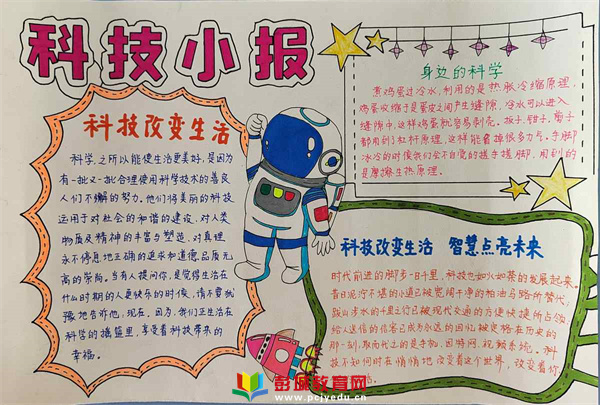 科技小报
科技改变生活
科学之所以能使生活更美好,是因为
有一批又一批合理使用科学技术的善良
人们不懈的努力。他们将美丽的科技
运用于对社会的和谐的建设,对人类
物质及精神的丰富与塑造,对真理
永不停息地正确的追求和道德品质无
高的崇尚。当有人提问你,是觉得生活在
什么时期的人更快乐的时候,请不要犹
豫地告诉他,现在。因为,我们正生活在
科学的摇篮里,享受着科技带来的
幸福。
身边的科学
煮鸡蛋过冷水,利用的是热胀冷缩原理,
鸡蛋收缩于是蛋皮之间产生缝隙,冷水可以进入
缝隙中,这样鸡蛋就容易剥壳。扳手、钳子、筷子
都用到杠杆原理,这样能省掉很多力气。手脚
冰冷的时候我们会不自觉的搓手搓脚,用到的
是摩擦生热原理。
科技改变生活 智慧点亮未来
时代前进的脚步一日千里,科技也如火如荼的发展起来。
昔日泥泞不堪的小道已被宽阔干净的柏油马路所替代,
跋山涉水的千里之行已被现代交通的方便快捷所占领
给人送信的信客已成为永远的回忆被定格在历史的
那一刻,取而代之的是手机,因特网,视频系统。科
技不知何时在悄悄地改变着这个世界,改变着你
彭城教育网
www.pcjyedu.cn